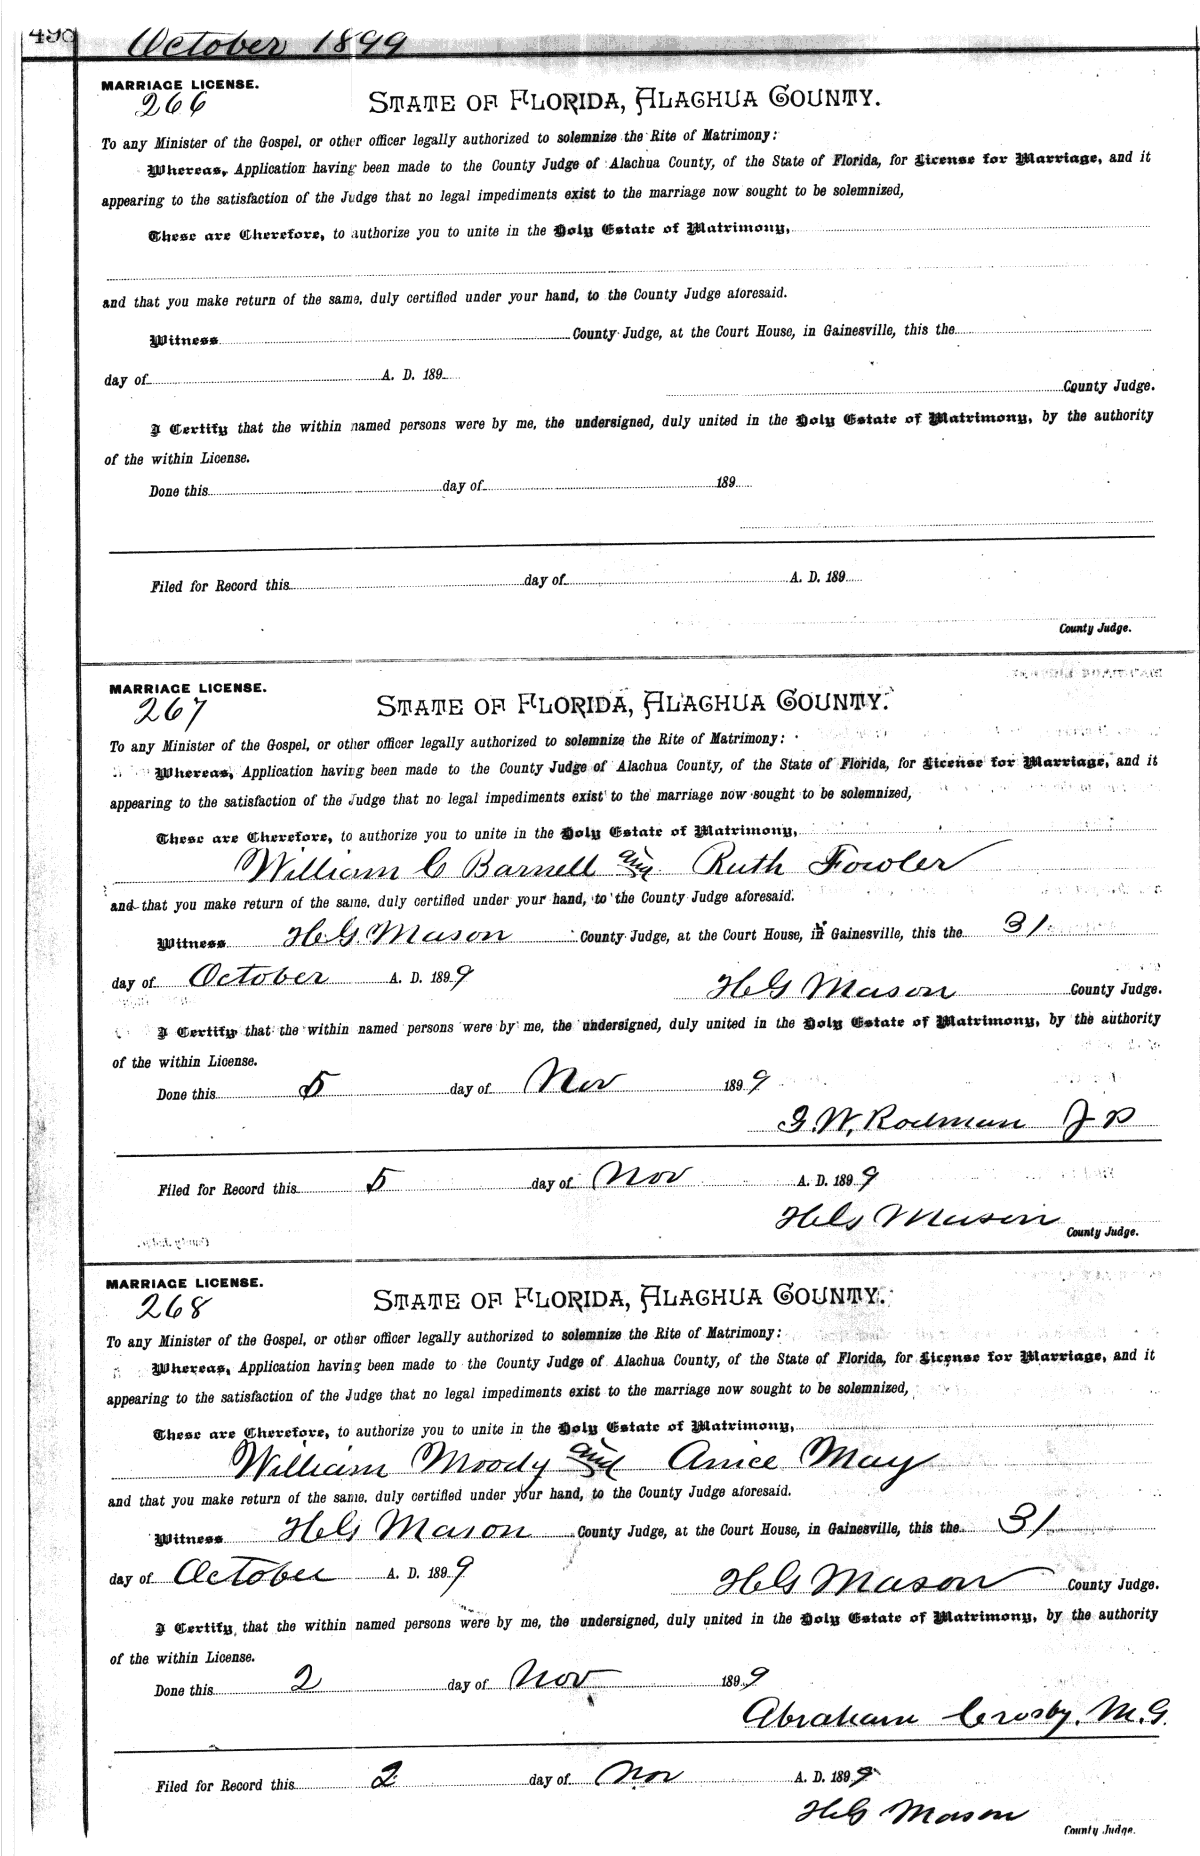 498 October 1899
MARRIAGE LICENSE.
266
STATE OF FLORIDA, ALACHUA COUNTY.
To any Minister of the Gospel, or other officer legally authorized to solemnize the Rite of Matrimony:
Whereas, Application having been made to the County Judge of Alachua County, of the State of Florida, for License for Marriage, and it
appearing to the satisfaction of the Judge that no legal impediments exist to the marriage now sought to be solemnized,
These are Therefore, to authorize you to unite in the Holy Estate of Matrimony,
and that you make return of the same, duly certified under your hand, to the County Judge aforesaid.
Witness County Judge, at the Court House, in Gainesville, this the
day of A. D. 189
County Judge.
I Certify that the within named persons were by me, the undersigned, duly united in the Holy Estate of Matrimony, by the authority
of the within License.
Done this day of 189
Filed for Record this day of A. D. 189
County Judge.
MARRIAGE LICENSE.
267
STATE OF FLORIDA, ALACHUA COUNTY.
To any Minister of the Gospel, or other officer legally authorized to solemnize the Rite of Matrimony:
Whereas, Application having been made to the County Judge of Alachua County, of the State of Florida, for License for Marriage, and it
appearing to the satisfaction of the Judge that no legal impediments exist to the marriage now sought to be solemnized,
These are Therefore, to authorize you to unite in the Holy Estate of Matrimony,
William C Barnell and Ruth Fowler
and that you make return of the same, duly certified under your hand, to the County Judge aforesaid.
Witness H.G. Mason County Judge, at the Court House, in Gainesville, this the 31
day of October A. D. 1899
HG Mason County Judge.
I Certify that the within named persons were by me, the undersigned, duly united in the Holy Estate of Matrimony, by the authority
of the within License.
Done this 5 day of Nov 1899
G. W. Rodman J P
Filed for Record this 5 day of Nov A. D. 1899
HG Mason
County Judge.
MARRIAGE LICENSE.
268
STATE OF FLORIDA, ALACHUA COUNTY.
To any Minister of the Gospel, or other officer legally authorized to solemnize the Rite of Matrimony:
Whereas, Application having been made to the County Judge of Alachua County, of the State of Florida, for License for Marriage, and it
appearing to the satisfaction of the Judge that no legal impediments exist to the marriage now sought to be solemnized,
These are Therefore, to authorize you to unite in the Holy Estate of Matrimony,
William Moody and Anice May
and that you make return of the same, duly certified under your hand, to the County Judge aforesaid.
Witness HG Mason County Judge, at the Court House, in Gainesville, this the 31
day of October A. D. 1899
HG Mason County Judge.
I Certify that the within named persons were by me, the undersigned, duly united in the Holy Estate of Matrimony, by the authority
of the within License.
Done this 2 day of Nov 1899
Abraham Crosby, M.G.
Filed for Record this 2 day of Nov A. D. 1899
HG Mason
County Judge.